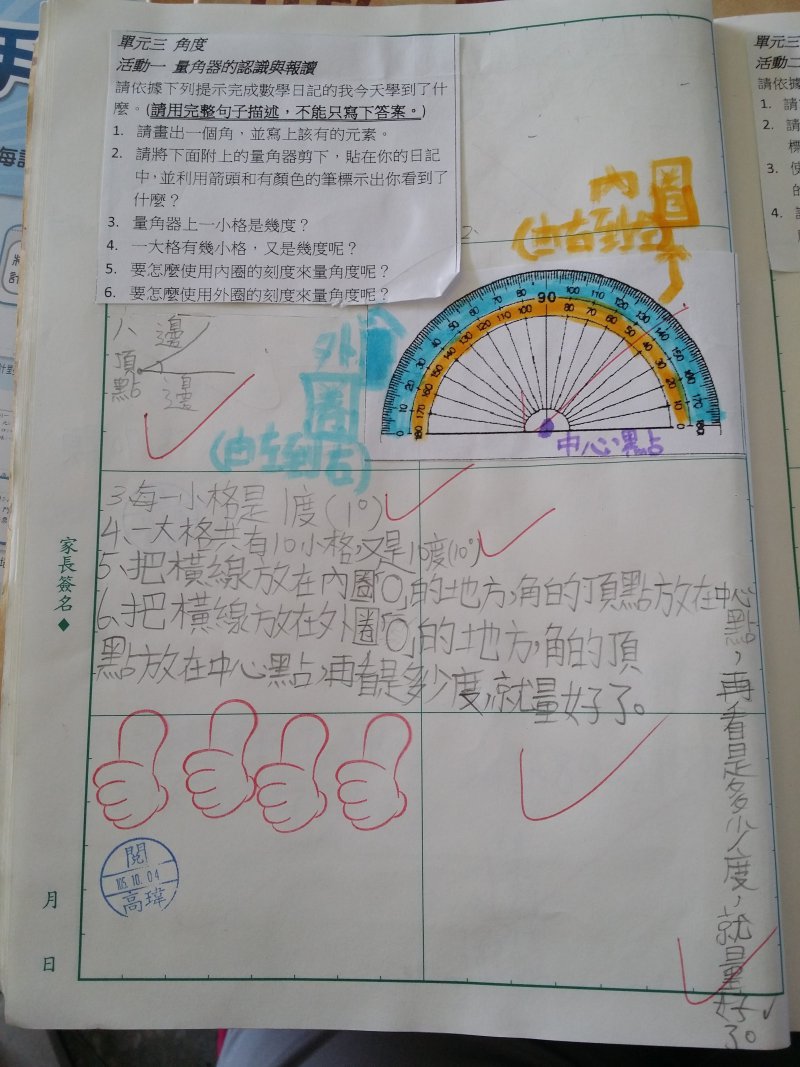 單元三 角度
活動一 量角器的認識與報讀
請依據下列提示完成數學日記的我今天學到了什
麼。(請用完整句子描述，不能只寫下答案。)
1. 請畫出一個角，並寫上該有的元素。
2. 請將下面附上的量角器剪下，貼在你的日記
中，並利用箭頭和有顏色的筆標示出你看到了
什麼？
3. 量角器上一小格是幾度？
4. 一大格有幾小格，又是幾度呢？
5. 要怎麼使用內圈的刻度來量角度呢？
6. 要怎麼使用外圈的刻度來量角度呢？
單元三
活動二
請依據
1. 請
2. 請
標
3. 使
的
4.
2.
內圈
(由右到左)
外圈
(由左到右)
90
中心點
1、邊
頂點
邊
3.每一小格是1度(1°)
4、一大格共有10小格，又是10度(10°)
5、把橫線放在內圈「0」的地方，角的頂點放在中心
點，再看是多少度，就量好了。
6、把橫線放在外圈「0」的地方，角的頂
點放在中心點，再看是多少度，就量好了。
家長簽名◆
月
日
閱
105.10.04
高瑋